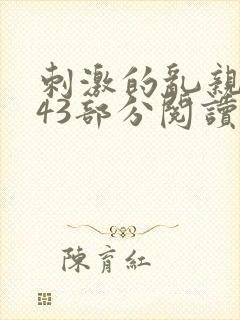 刺激的亂親
43部分閱讀
陳育紅